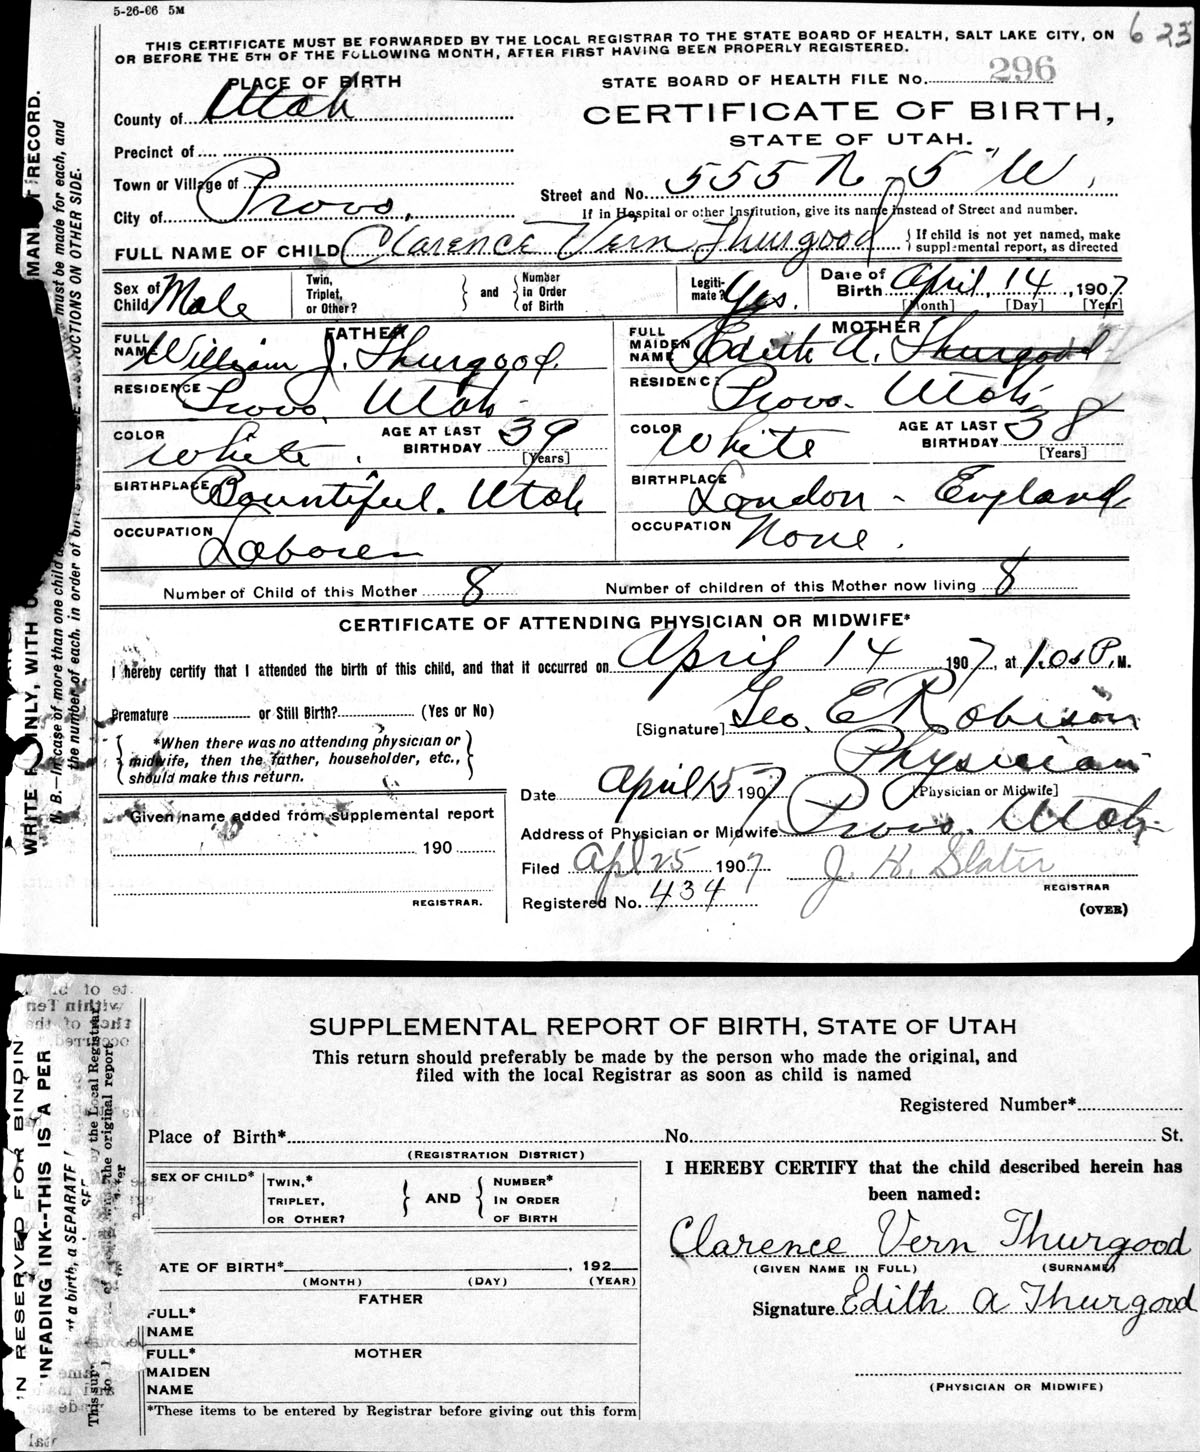 5-26-06 5M
THIS CERTIFICATE MUST BE FORWARDED BY THE LOCAL REGISTRAR TO THE STATE BOARD OF HEALTH, SALT LAKE CITY, ON
OR BEFORE THE 5TH OF THE FOLLOWING MONTH, AFTER FIRST HAVING BEEN PROPERLY REGISTERED.
623
PLACE OF BIRTH
STATE BOARD OF HEALTH FILE No. 296
County of Utah
CERTIFICATE OF BIRTH,
STATE OF UTAH.
Precinct of
Town or Village of
Street and No. 555 N 5" W,
City of Provo,
If in Hospital or other Institution, give its name instead of Street and number.
FULL NAME OF CHILD Clarence Vern Thurgood { If child is not yet named, make
supplemental report, as directed
Sex of Child Male
Twin, Triplet, or Other? } and { Number in Order of Birth
Legitimate? Yes.
Date of Birth April, 14, 1907
[Month] [Day] [Year]
FATHER
FULL NAME William J. Thurgood.
MOTHER
FULL MAIDEN NAME Edith A. Thurgood
RESIDENCE Provo. Utah
RESIDENCE Provo. Utah
COLOR White. AGE AT LAST BIRTHDAY 39 [Years]
COLOR White AGE AT LAST BIRTHDAY 38 [Years]
BIRTHPLACE Bountiful. Utah
BIRTHPLACE London - England
OCCUPATION Laborer
OCCUPATION None.
Number of Child of this Mother 8 Number of children of this Mother now living 8
CERTIFICATE OF ATTENDING PHYSICIAN OR MIDWIFE*
I hereby certify that I attended the birth of this child, and that it occurred on April 14 1907, at 1.05 P. M.
Premature or Still Birth? (Yes or No)
[Signature] Geo. E Robison
{ *When there was no attending physician or
midwife, then the father, householder, etc.,
should make this return. }
Physician
[Physician or Midwife]
Date April 15 1907
Given name added from supplemental report
Address of Physician or Midwife Provo. Utah
190
Filed Apl 25 1907 J. H. Slater
REGISTRAR
REGISTRAR.
Registered No. 434
(OVER)
SUPPLEMENTAL REPORT OF BIRTH, STATE OF UTAH
This return should preferably be made by the person who made the original, and
filed with the local Registrar as soon as child is named
Registered Number*
Place of Birth* No. St.
(REGISTRATION DISTRICT)
SEX OF CHILD*
TWIN,* TRIPLET, OR OTHER? } AND { NUMBER* IN ORDER OF BIRTH
I HEREBY CERTIFY that the child described herein has
been named:
Clarence Vern Thurgood
(GIVEN NAME IN FULL) (SURNAME)
ATE OF BIRTH* , 192
(MONTH) (DAY) (YEAR)
Signature Edith A Thurgood
FATHER
FULL* NAME
MOTHER
FULL* MAIDEN NAME
(PHYSICIAN OR MIDWIFE)
*These items to be entered by Registrar before giving out this form